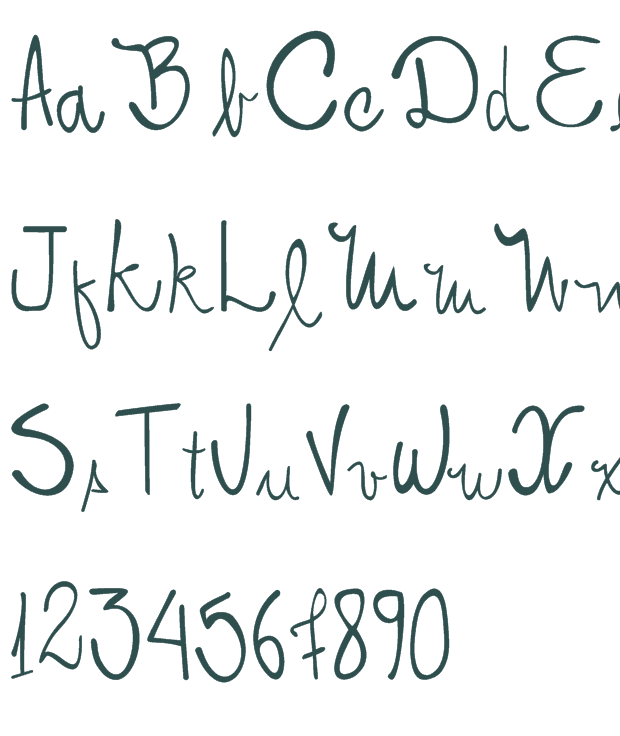 Aa Bb Cc Dd E
Jj Kk Ll Mm Nn
Ss Tt Uu Vv Ww Xx
1234567890